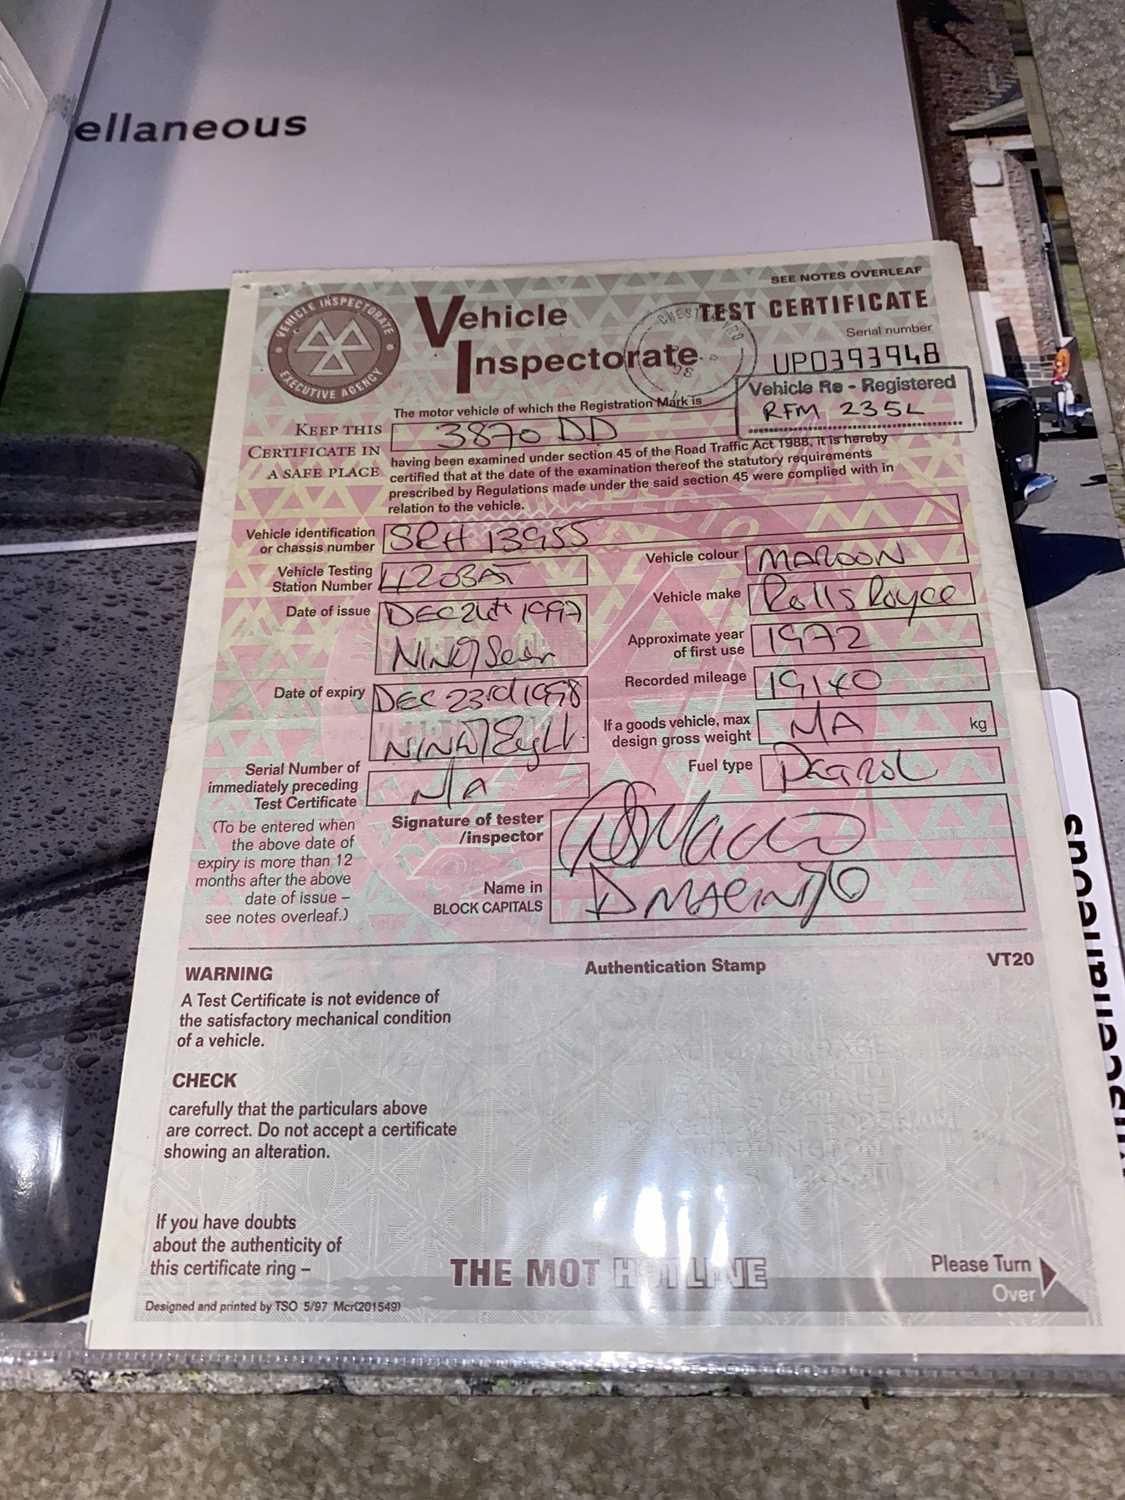 ellaneous
SEE NOTES OVERLEAF
VEHICLE INSPECTORATE
EXECUTIVE AGENCY
Vehicle
Inspectorate
TEST CERTIFICATE
Serial number
UP0393948
Vehicle Re - Registered
RFM 235L
The motor vehicle of which the Registration Mark is
3870 DD
KEEP THIS
CERTIFICATE IN
A SAFE PLACE
having been examined under section 45 of the Road Traffic Act 1988, it is hereby
certified that at the date of the examination thereof the statutory requirements
prescribed by Regulations made under the said section 45 were complied with in
relation to the vehicle.
Vehicle identification
or chassis number
SRH 13955
Vehicle Testing
Station Number
4203AT
Vehicle colour
MAROON
Date of issue
DEC 24th 1997
Vehicle make
Rolls Royce
Approximate year
of first use
1972
Date of expiry
DEC 23rd 1998
Recorded mileage
19140
If a goods vehicle, max
design gross weight
N/A
kg
Serial Number of
immediately preceding
Test Certificate
N/A
Fuel type
Petrol
(To be entered when
the above date of
expiry is more than 12
months after the above
date of issue –
see notes overleaf.)
Signature of tester
/inspector
Name in
BLOCK CAPITALS
WARNING
A Test Certificate is not evidence of
the satisfactory mechanical condition
of a vehicle.
Authentication Stamp
VT20
CHECK
carefully that the particulars above
are correct. Do not accept a certificate
showing an alteration.
If you have doubts
about the authenticity of
this certificate ring –
THE MOT HOTLINE
Please Turn
Over
Designed and printed by TSO 5/97 Mcr(201549)